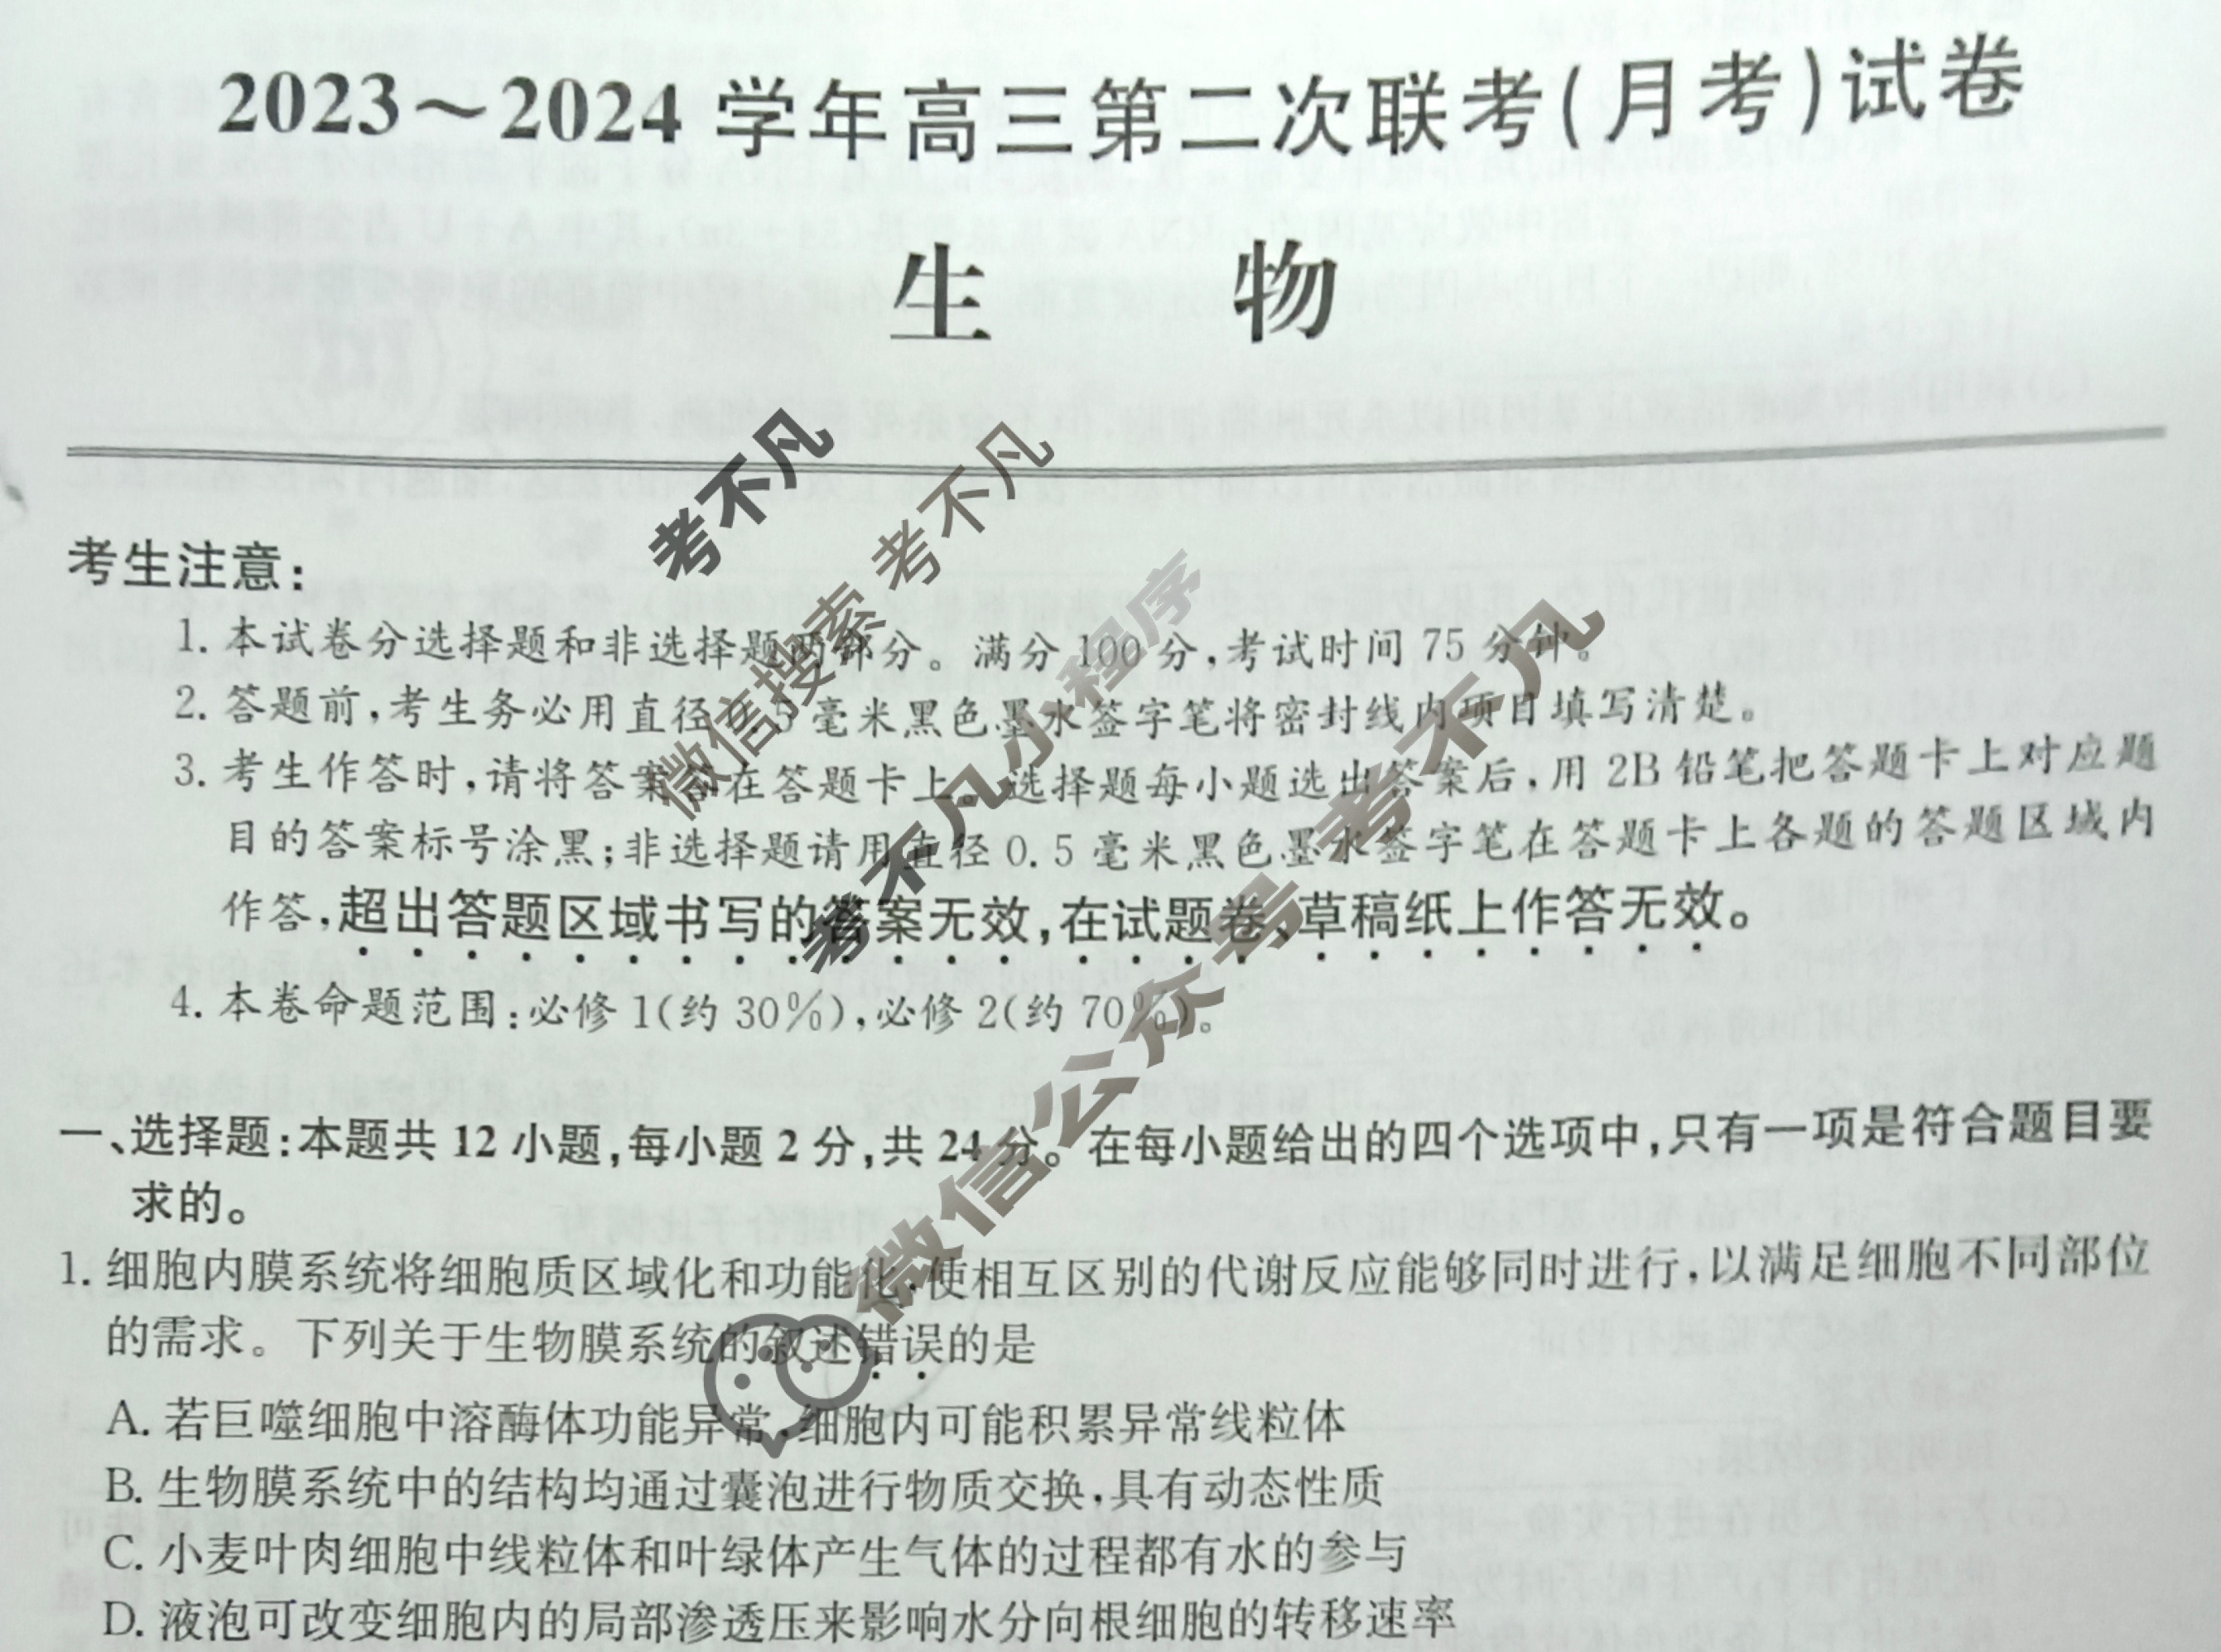 2023～2024学年高三第二次联考(月考)试卷
生 物
考生注意:
1. 本试卷分选择题和非选择题两部分。满分100分,考试时间75分钟。
2. 答题前,考生务必用直径0.5毫米黑色墨水签字笔将密封线内项目填写清楚。
3. 考生作答时,请将答案答在答题卡上。选择题每小题选出答案后,用2B铅笔把答题卡上对应题
目的答案标号涂黑;非选择题请用直径0.5毫米黑色墨水签字笔在答题卡上各题的答题区域内
作答,超出答题区域书写的答案无效,在试题卷、草稿纸上作答无效。
4. 本卷命题范围:必修1(约30%),必修2(约70%)。
一、选择题:本题共12小题,每小题2分,共24分。在每小题给出的四个选项中,只有一项是符合题目要
求的。
1. 细胞内膜系统将细胞质区域化和功能化,使相互区别的代谢反应能够同时进行,以满足细胞不同部位
的需求。下列关于生物膜系统的叙述错误的是
A. 若巨噬细胞中溶酶体功能异常,细胞内可能积累异常线粒体
B. 生物膜系统中的结构均通过囊泡进行物质交换,具有动态性质
C. 小麦叶肉细胞中线粒体和叶绿体产生气体的过程都有水的参与
D. 液泡可改变细胞内的局部渗透压来影响水分向根细胞的转移速率
考不凡
微信搜索 考不凡
考不凡小程序
微信公众号 考不凡